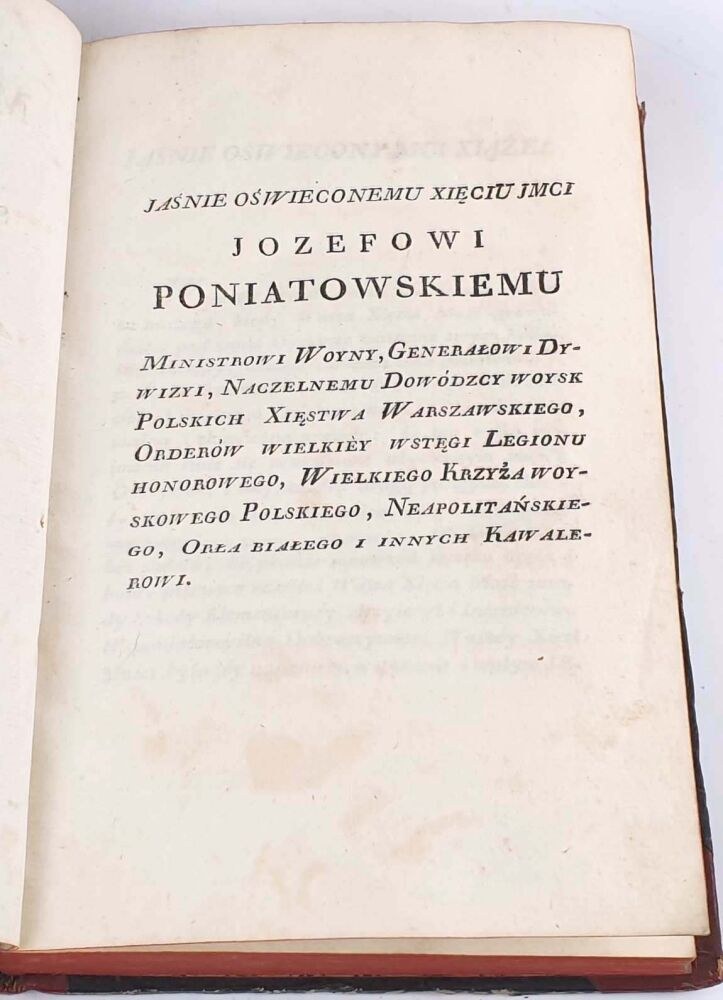 JAŚNIE OŚWIECONEMU XIĘCIU JMCI
JOZEFOWI
PONIATOWSKIEMU
MINISTROWI WOYNY, GENERAŁOWI DY-
WIZYI, NACZELNEMU DOWÓDZCY WOYSK
POLSKICH XIĘSTWA WARSZAWSKIEGO,
ORDERÓW WIELKIÈY WSTĘGI LEGIONU
HONOROWEGO, WIELKIEGO KRZYŻA WOY-
SKOWEGO POLSKIEGO, NEAPOLITAŃSKIE-
GO, ORŁA BIAŁEGO I INNYCH KAWALE-
ROWI.